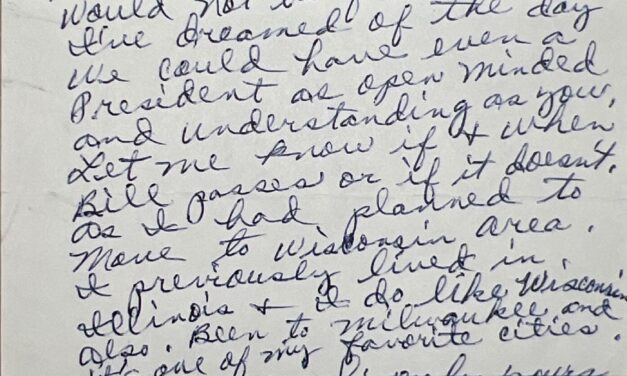 would not
I've dreamed of the day
we could have even a
President as open minded
and understanding as you,
Let me know if & when
Bill passes or if it doesn't.
as I had planned to
move to Wisconsin area.
I previously lived in
Illinois & I do like Wisconsin
also. Been to milwaukee and
it's one of my favorite cities.
yours